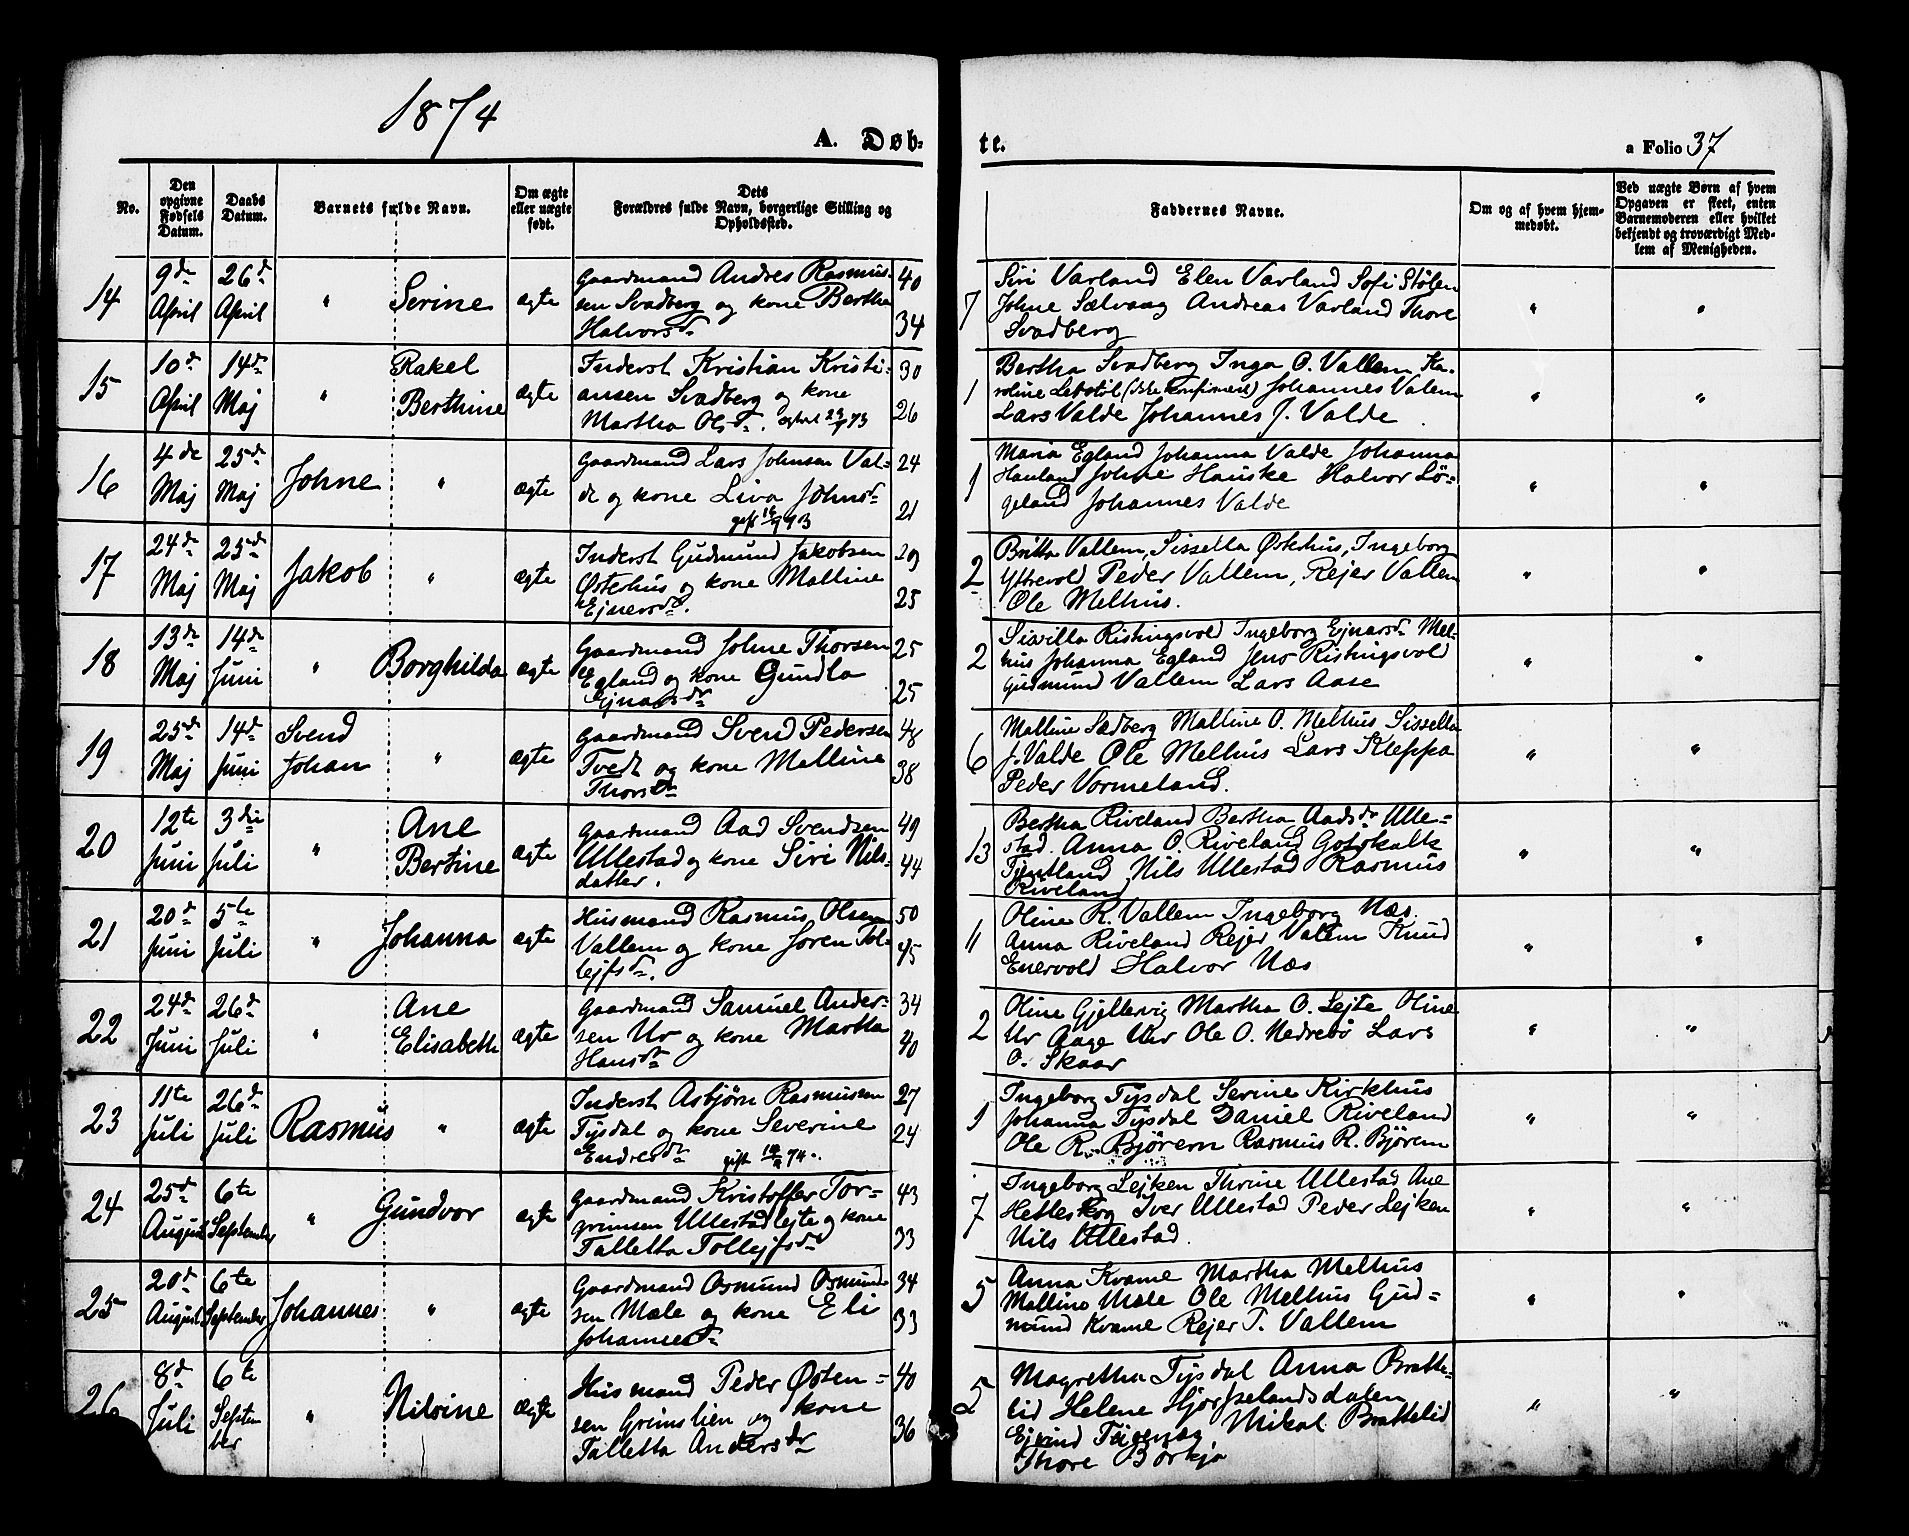 1874
A. Døb-
te.
a Folio 37
No.
Den opgivne Fødsels Datum.
Daabs Datum.
Barnets fulde Navn.
Om ægte eller uægte født.
Dets Forældres fulde Navn, borgerlige Stilling og Opholdssted.
Faddernes Navne.
Om og af hvem hjemmedøbt.
Ved uægte Børn af hvem Opgaven er skeet, enten Barnemoderen eller hvilket bekjendt og troværdigt Medlem af Menigheden.
14 9de April 26de April " Serine ægte
Gaardmand Andres Rasmus- 40
sen Svadberg og kone Bertha
Halvorsdr 34
7 Siri Varland Elen Varland Sofi Stølen
Johne Sælvaag Andreas Varland Thore
Svadberg " "
15 10de April 14de Maj " Rakel Berthine ægte
Inderst Kristian Kristi- 30
ansen Svadberg og kone
Martha Olsdr. 26
1 Bertha Svadberg Inga O. Vallem Ka-
roline Lebstøl (ikke konfirmert) Johannes Valem
Lars Valde Johannes J. Valde " "
16 4de Maj 25de Maj Johne " ægte
Gaardmand Lars Johnsen Val- 24
de og kone Liva Johnsdr
gift 21
1 Maria Egland Johanna Valde Johanna
Hauland Johne Hauske Halvor Lø-
geland Johannes Valde " "
17 24de Maj 25de Maj Jakob " ægte
Inderst Gudmund Jakobsen 29
Østerhus og kone Malline
Ejnersdr. 25
2 Britta Vallem, Sissella Østerhus, Ingeborg
Yttrevold Peder Vallem, Rejer Vallem
Ole Melhus. " "
18 13de Maj 14de Juni " Borghilda ægte
Gaardmand Johne Thorsen 25
Egland og kone Gundla
Ejnarsdr 25
2 Sissilla Ristingsvold Ingeborg Ejnarsdr Mel-
hus Johanna Egland Jens Ristingsvold
Gudmund Vallem Lars Aase " "
19 25de Maj 14de Juni Svend Johan " ægte
Gaardmand Svend Pedersen 48
Tvedt og kone Malline
Thorsdr 38
6 Malline Sædberg Malline O. Melhus Sissella
J. Valde Ole Melhus Lars Kleppa
Peder Vormeland. " "
20 12te Juni 3die Juli " Ane Bertine ægte
Gaardmand Aad Svendsen 49
Ullestad og kone Siri Nils-
datter. 44
13 Bertha Riveland Bertha Aadsdr Ulle-
stad. Anna O. Riveland Gotskalk
Tjentland Nils Ullestad Rasmus
Riveland " "
21 20de Juni 5te Juli " Johanna ægte
Husmand Rasmus Olsen 50
Vallem og kone Joren Tol-
lejfsdr. 45
11 Oline R. Vallem Ingeborg Næs.
Anna Riveland Rejer Vallem Knud
Enervold Halvor Næs " "
22 24de Juni 26de Juli " Ane Elisabeth ægte
Gaardmand Samuel Ander- 34
sen Ur og kone Martha
Hansdr 40
2 Oline Gjellervig Martha O. Lejte Oline
Ur Aage Ur Ole O. Nedrebø Lars
O. Skaar " "
23 11te Juli 26de Juli Rasmus " ægte
Inderst Asbjørn Rasmussen 27
Tysdal og kone Severine
Endresdr gift 74. 24
1 Ingeborg Tysdal Serine Kirkhus
Johanna Tysdal Daniel Riveland
Ole R. Bjørem Rasmus R. Bjørem " "
24 25de August 6te September " Gundvor ægte
Gaardmand Kristoffer Tor- 43
grimsen Ullestadlejte og kone
Talletta Tollejfsdr 33
7 Ingeborg Lejken Thrine Ullestad Ane
Helleskog Iver Ullestad Peder Lejken
Nils Ullestad. " "
25 20de August 6te September Johannes " ægte
Gaardmand Osmund Osmund- 34
sen Mæle og kone Eli
Johannesdr 33
5 Anna Kvame Martha Melhus
Malline Mæle Ole Melhus Gud-
mund Kvame Rejer T. Vallem " "
26 8de Juli 6te September " Nilsine ægte
Husmand Peder Østen- 40
sen Grimslien og kone
Talletta Andersdr 36
5 Magretha Tysdal Anna Bratte-
lid Helene Hjørselandsdalen
Ejvind Mikal Brattelid
Thore Børkja " "